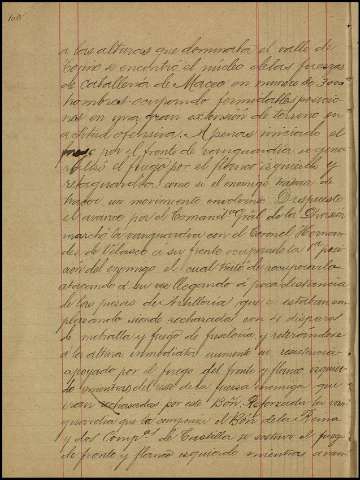 a las alturas que dominaba el valle de
se encontró el núcleo de las fuerzas
de Caballería de Maceo en número de 3000
hombres ocupando formidables posicio
nes en una gran extensión de terreno en
actitud ofensiva. Apenas iniciado el
por el frente de vanguardia se gene
ralizó el fuego por el flanco izquierdo y
retaguardia como si el enemigo tratara de
hacer un movimiento envolvente. Dispuesto
el avance por el Comand.te Gral de la División
marchó la vanguardia con el Coronel Hernan
dez de Velasco a su frente ocupando la 1ª posi
ción del enemigo el cual trató de recuperarla
atacando á su vez llegando á poca distancia
de las piezas de Artillería que se estaban em
plazando siendo rechazadas con disparos
de metralla y fuego de fusilería y retirándose
a la altura inmediata aumentó su resistencia
apoyado por el fuego del frente y flanco izquier
do mientras del resto de la fuerza enemiga que
eran rechazadas por este Bón. Reforzada la van
guardia que la componía el Bón de la Reina
y dos Comp.as de Castilla se sostuvo el fuego
de frente y flanco izquierdo mientras